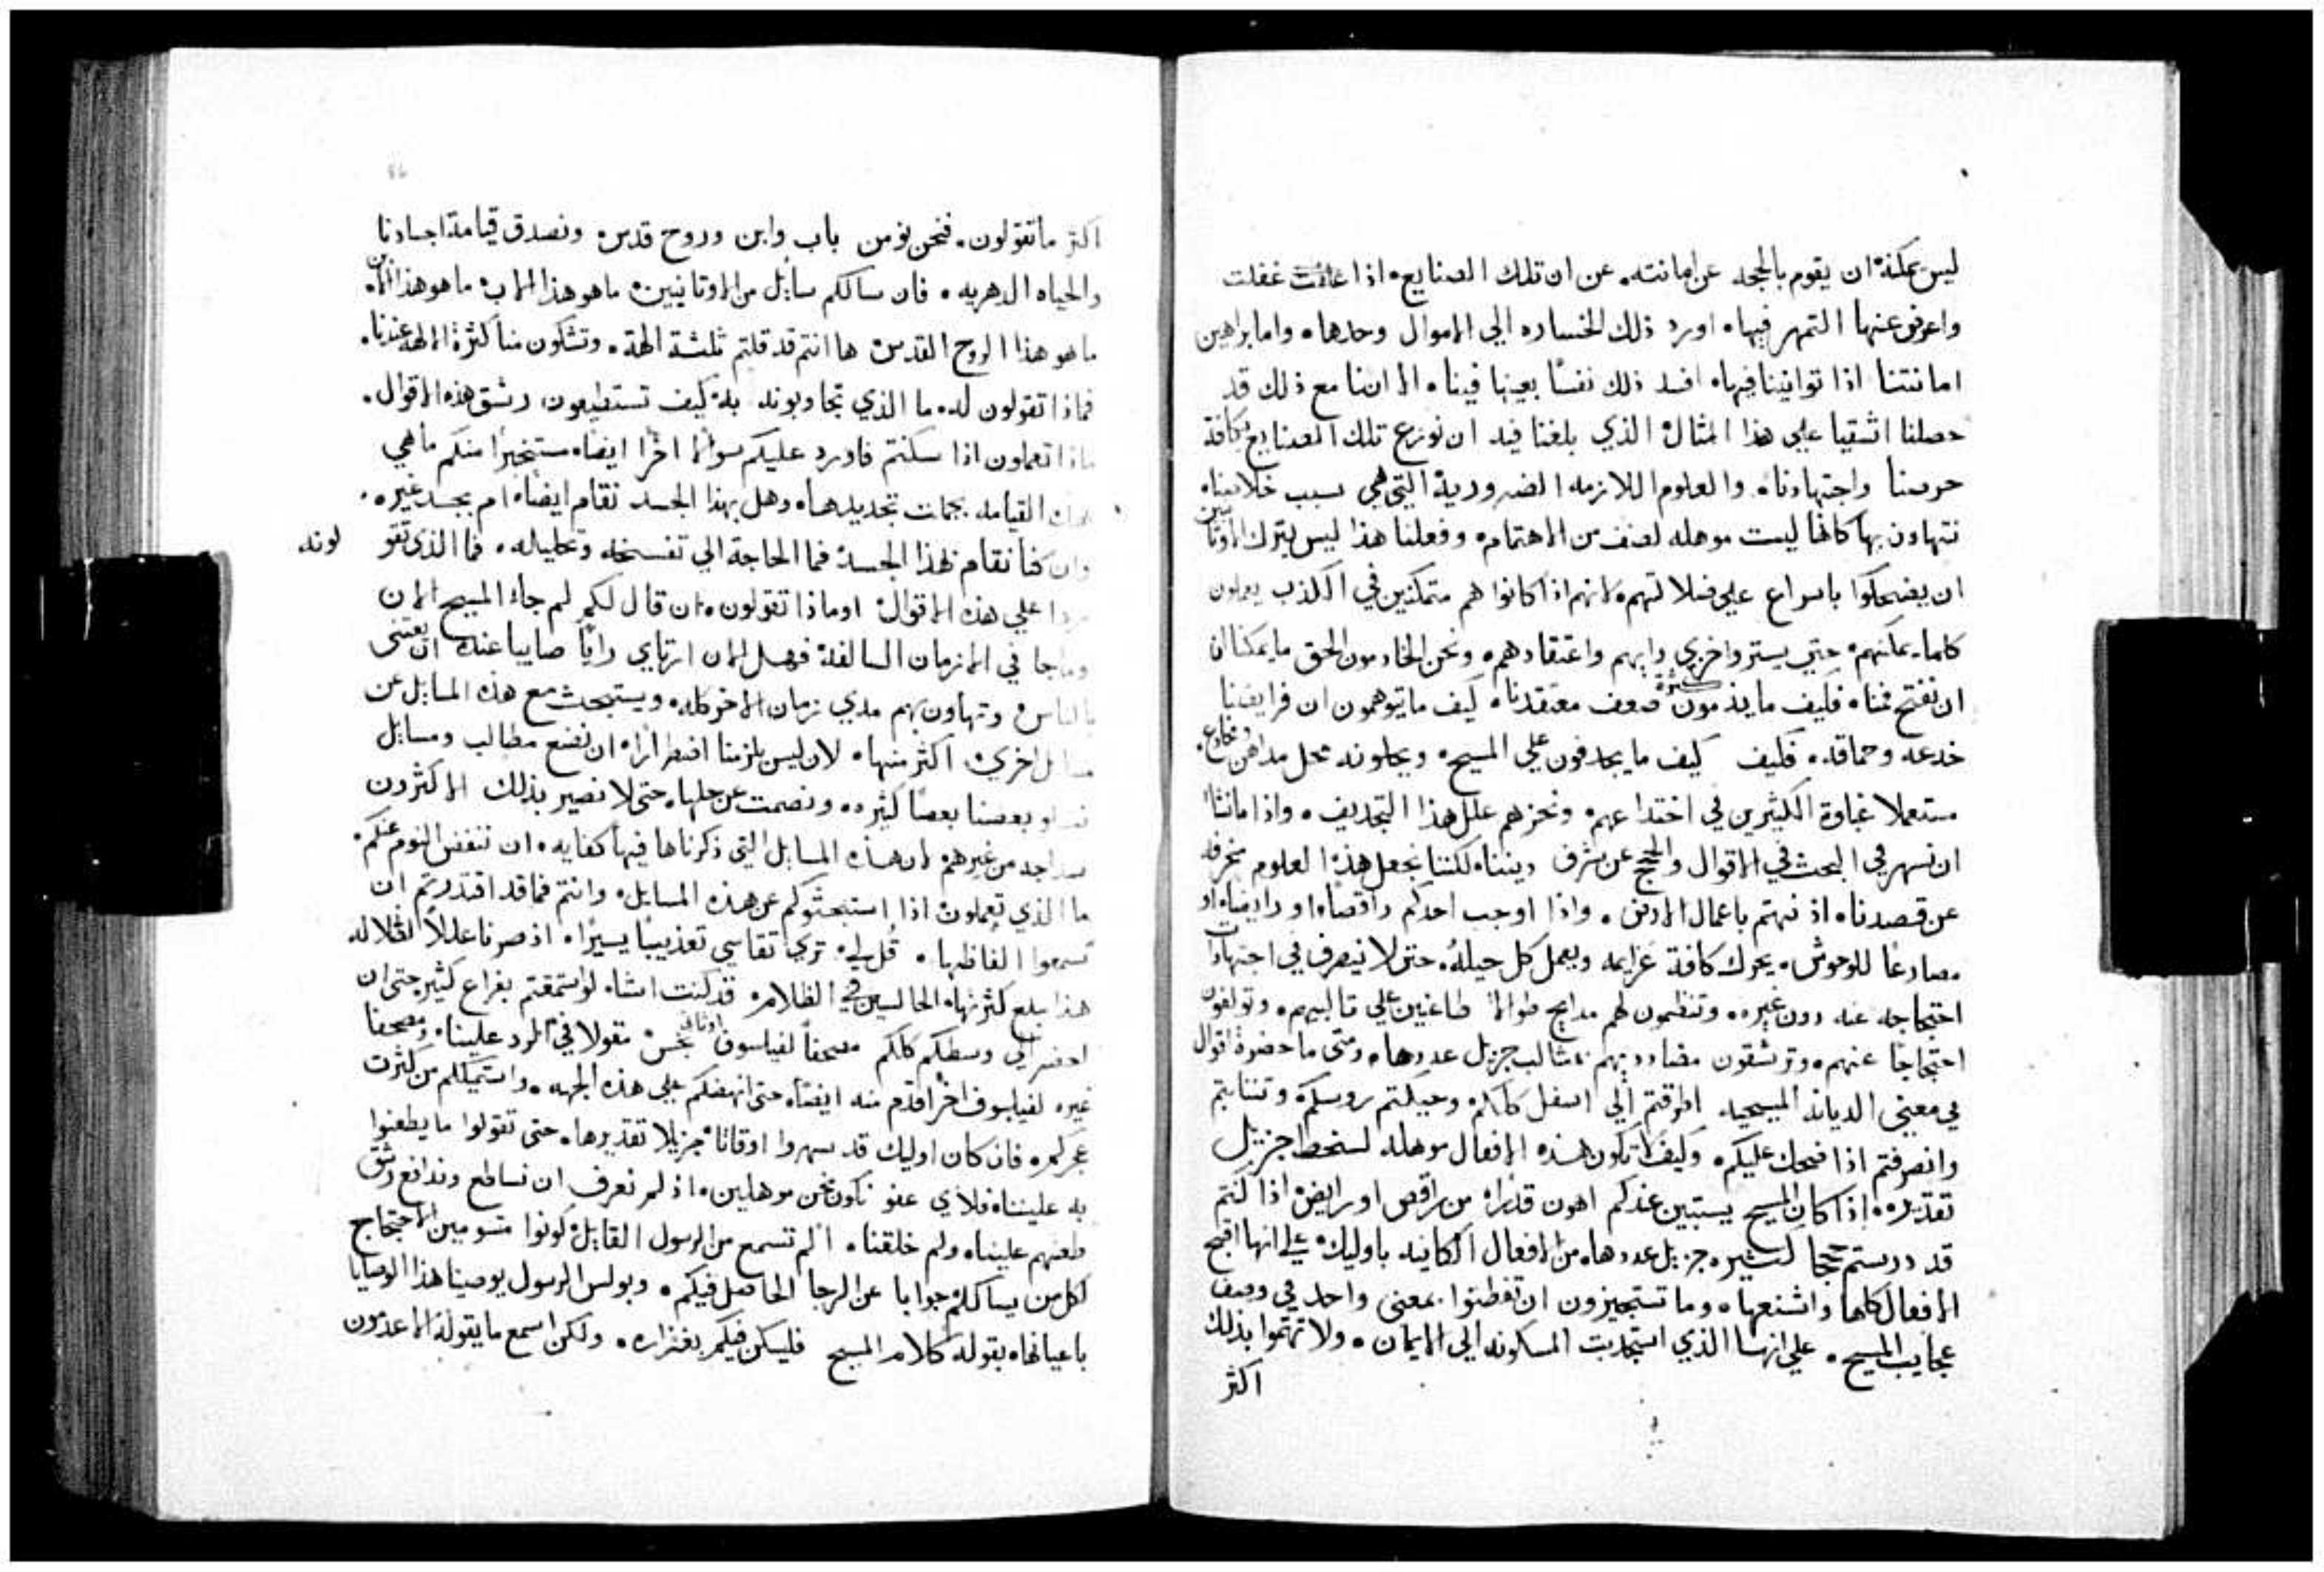 ليس يمكنه ان يقوم بالحجه عن امانته. عن ان تلك الصنايع. اذا غفلت
واعرض عنها التمهر فيها. اورد ذلك الخساره الي الاموال وحدها. واما براهين
امانتنا اذا توانينا فيها. افسد ذلك نفسًا بعينها فينا. الا اننا مع ذلك قد
حصلنا اشقيا علي هذا المثال الذي بلغنا فيه ان نوزع تلك الصنايع كافة
حرصنا واجتهادنا. والعلوم اللازمه الضرورية التي هي سبب خلاصنا.
نتهاون بها كانها ليست موهله لصنف من الاهتمام. وفعلنا هذا ليس يترك الاوثانيين
ان يضحكوا باسراع علي ضلالتهم. لانهم اذا كانوا هم متمكنين في الكذب يعملون
كلما يمكنهم. حتي يستروا خزي رايهم واعتقادهم. ونحن الخادمون الحق ما يمكننا ان
ان نفتح فمنا. فكيف ما يذمون كثرة ضعف معتقدنا. كيف ما يتوهمون ان فرايضنا
خدعه وحماقه. فكيف كيف ما يجدفون علي المسيح. ويحلونه محل مداهن ومخادع.
مستعملا غباوة الكثيرين في اختداعهم. ونحن هم علل هذا التجديف. واذا ما نشا
ان نسهر في البحث في الاقوال والحجج عن شرف ديننا. لكننا نجعل هذه العلوم منحرفه
عن قصدنا. اذ نهتم باعمال الارض. واذا اوجب احدكم راقصًا او رايضًا. او
مصارعًا للوحوش. يحرك كافة عزايمه ويعمل كل حيلهُ. حتى لا ينصرف في اجتهادات
احتجاجه عنه دون غيره. وتنظمون لهم مدايح طوالا طاعنين علي ثالبيهم. وتولفون
احتجاجًا عنهم. وترشقون مضادديهم بمثالب جزيل عددها. ومتى ما حضرة اقوال
في معنى الديانه المسيحيه اطرقتم الي اسفل كلكم. وحككتم روسكم. وتثايبتم
وانصرفتم اذا ضحك عليكم. وكيف لا تكون هذه الافعال موهله لسخط جزيل
تقديره. اذا كان المسيح يستبين عندكم اهون قدرًا. من راقص او رايض. اذا كنتم
قد درستم حججا كثيره جزيل عددها. من الافعال الكاينه باوليك. علي انها اقبح
الافعال كلها واشنعها. وما تستجيزون ان تفطنوا بمعنى واحد في وصف
عجايب المسيح. علي انها الذي استجذبت المسكونه الي الايمان. ولا تهتموا بذلك
اكثر
اكثر ما تقولون. فنحن نومن باب وابن وروح قدس. ونصدق قيامة اجسادنا
والحياه الدهريه. فان سالكم سايل من الاوثانيين. ما هو هذا الاب. ما هو هذا الابن.
ما هو هذا الروح القدس. ها انتم قد قلتم ثلثة الهة. وتشكون منا كثرة الالهة عندنا.
فماذا تقولون له. ما الذي تجاوبونه به. كيف تستطيعون رشق هذه الاقوال.
ماذا تعملون اذا سكنتم فاورد عليكم سوالا اخرًا ايضًا. مستخبرًا منكم ما هي
القيامه بجهات تجديدها. وهل بهذا الجسد نقام ايضًا. ام بجسد غيره.
وان كنا نقام بهذا الجسد. فما الحاجة الي تفسخه وتحليله. فما الذي تقولونه
ردا علي هذه الاقوال. او ماذا تقولون. ان قال لكم لم جاء المسيح الان
وما جا في الازمان السالفة. فهل الان ارتاي رايًا صايبا عنده ان يعتنى
بالناس. وتهاون بهم مدي زمان الاخر كله. ويستبحث مع هذه المسايل عن
مسايل اخري. اكثر منها. لان ليس يلزمنا اضطرارًا. ان نضع مطالب ومسايل
بعضنا بعضًا كثيره. ونصمت عن حلها. حتى لا نصير بذلك الاكثرون
من غيرهم. لان هذه المسايل التي ذكرناها فيها كفايه. ان ننفض النوم عنكم.
ما الذي تعملون اذا استبحثوكم عن هذه المسايل. وانتم فما قد اقتدرتم ان
تسمعوا الفاظها. قُل لي. ترى تقاسي تعذيبًا يسيرًا. اذ صرنا عللاً لضلاله
هذا مبلغ كثرتها. الجالسين في الظلام. قد كنت اشاء لو استمعتم بفراغ كثير حتي ان
احضر الي وسطكم كلكم مصحفًا لفيلسوف اوثاني نجس. مقولا في الرد علينا. ومصحفا
غيره لفيلسوف اخر اقدم منه ايضًا. حتى انهضكم علي هذه الجهه. واستميلكم من كثرت
عجزكم. فان كان اوليك قد سهروا اوقاتًا جزيلا تقديرها. حتى تقولوا ما يطعنوا
به علينا. فلاي عفو نكون نحن موهلين. اذ لم نعرف ان نساطع وندافع رشق
طعنهم علينا. ولم خلقنا. الم تسمع من الرسول القايل. كونوا متسومين الاحتجاج
لكل من يسالكم جوابا عن الرجا الحاصل فيكم. وبولس الرسول يوصينا هذا الوصايا
باعيانها. بقوله كلام المسيح فليسكن فيكم بغزاره. ولكن اسمع ما يقوله الاعذرون